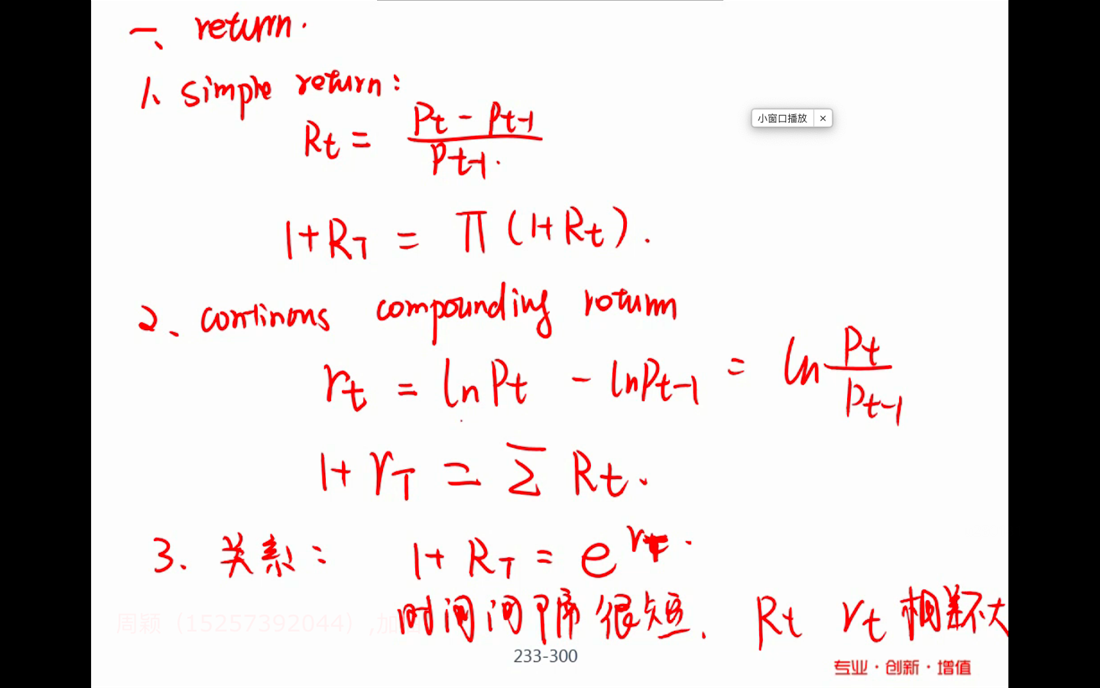 一、return.
1、simple return:
小窗口播放 ×
Rt = (Pt - Pt-1) / Pt-1.
1+RT = π (1+Rt).
2、continous compounding return
rt = lnPt - lnPt-1 = ln Pt / Pt-1
1+rT = Σ Rt.
3. 关系: 1+RT = e^rT.
时间间隔很短. Rt rt 相差不大
周颖（15257392044）,加
233-300
专业·创新·增值